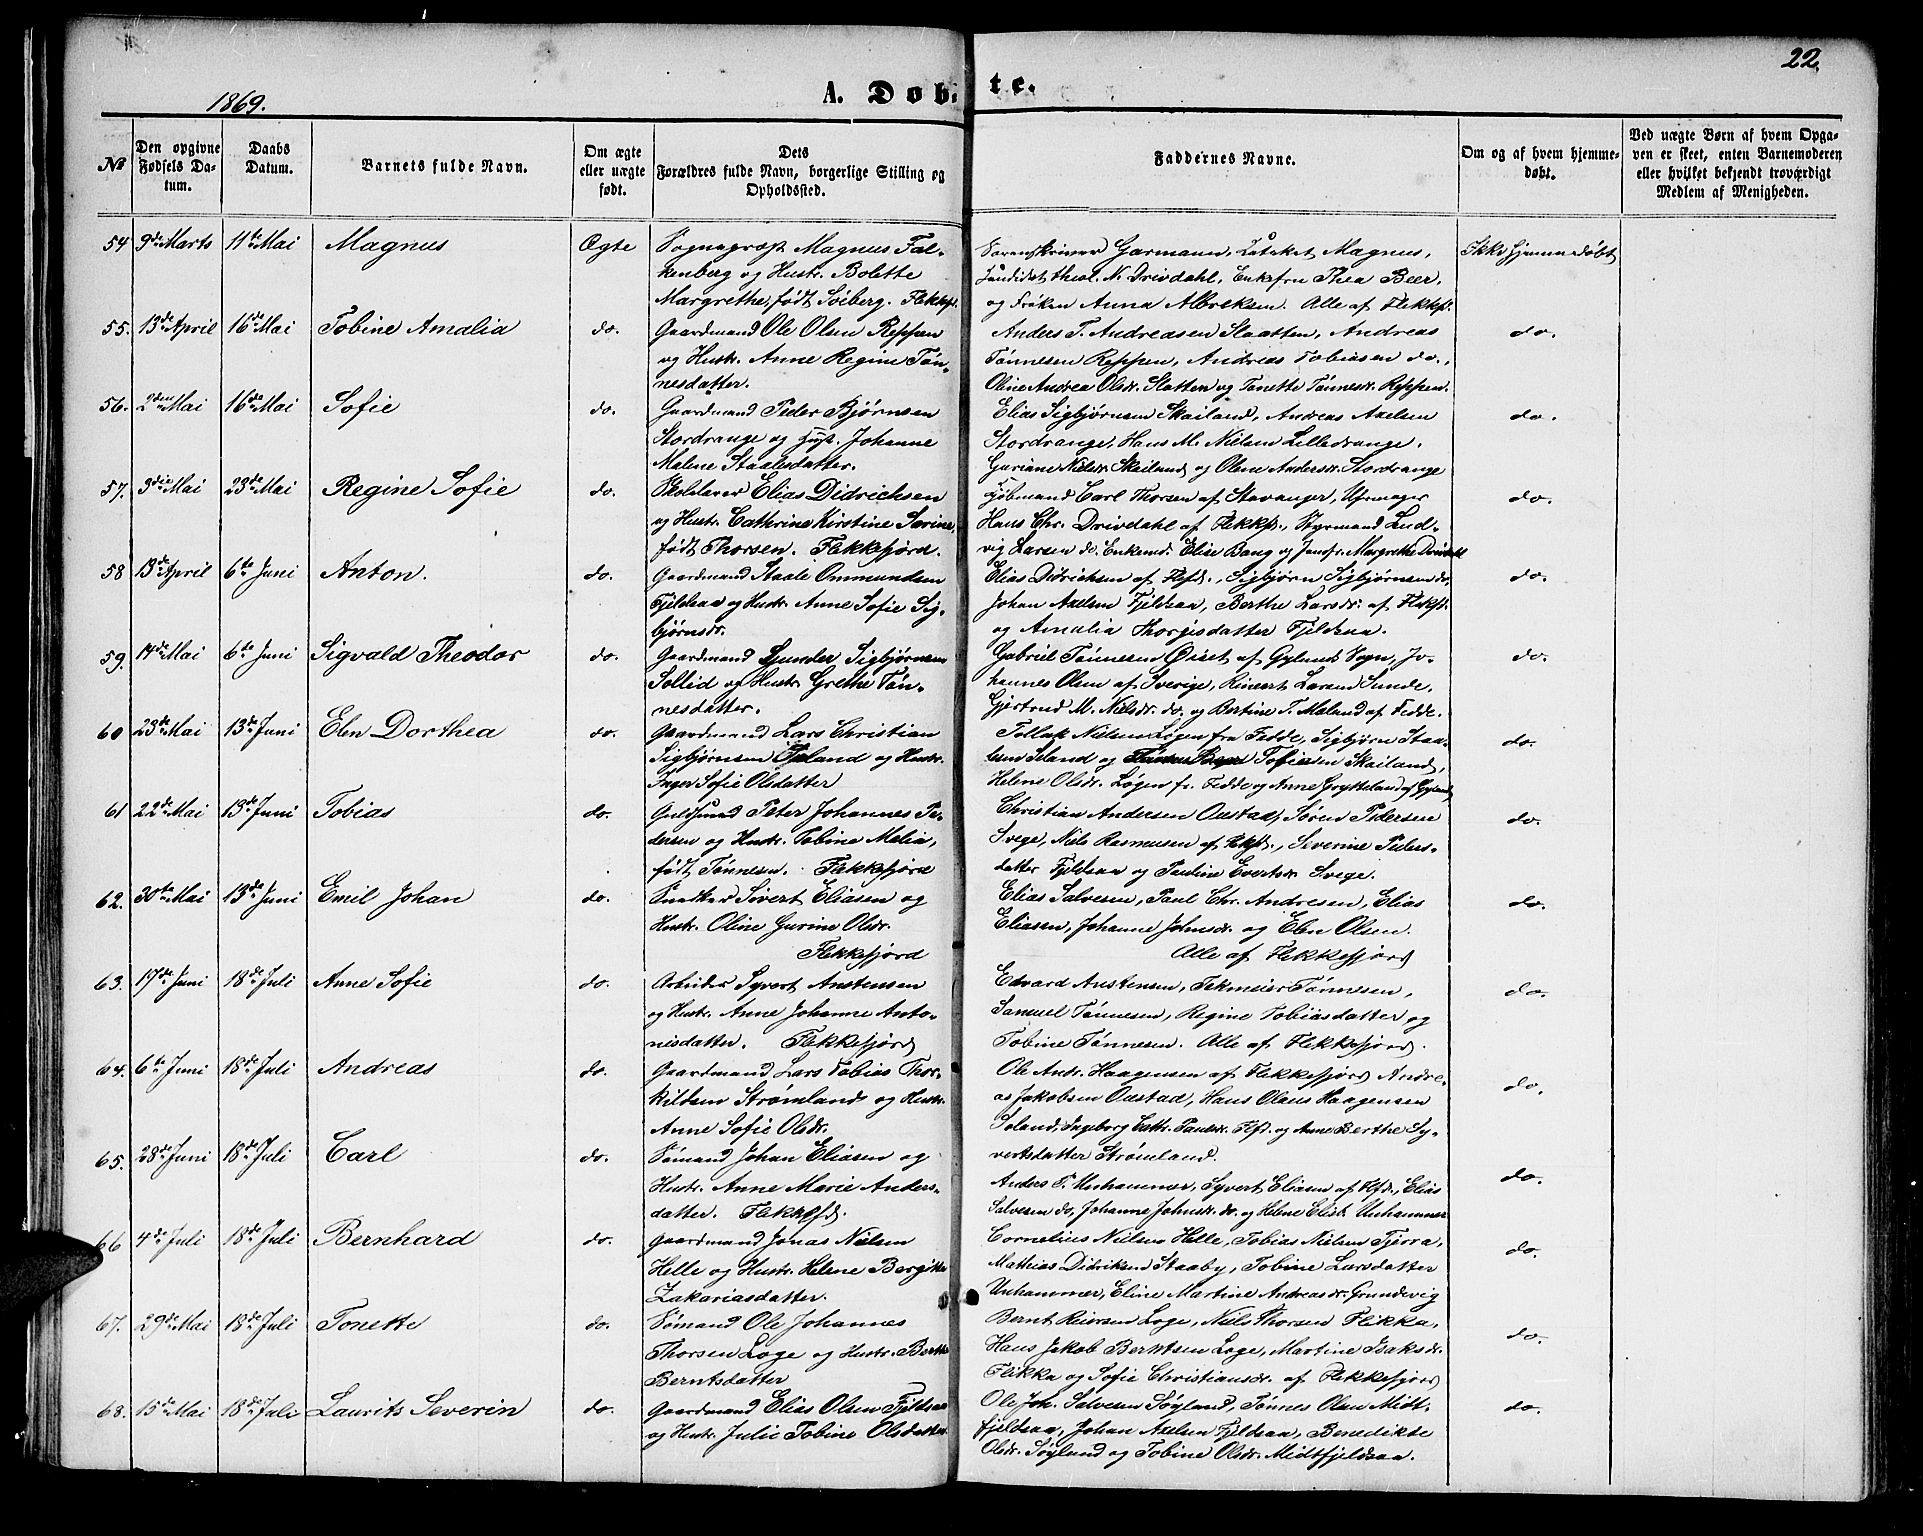 22.
1869.
A. Døbte.
№
Den opgivne Fødsels Datum.
Daabs Datum.
Barnets fulde Navn.
Om ægte eller uægte født.
Dets Forældres fulde Navn, borgerlige Stilling og Opholdssted.
Faddernes Navne.
Om og af hvem hjemmedøbt.
Ved uægte Børn af hvem Opgaven er skeet, enten Barnemoderen eller hvilket bekjendt troværdigt Medlem af Menigheden.
54 9de Marts 11te Mai Magnus Ægte
Sogneprest Magnus Falkenberg og Hustr. Bolette
Margrethe, født Soiberg. Flekkf.
Sorenskriver Garmann, Magnus,
theol. N. Drivdahl, Enkefru Thea Beer
og Frøken Anna Albreksen. Alle af Flekkf.
Ikke hjemmedøbt
55. 13de April 16de Mai Tobine Amalia do.
Gaardmand Ole Olsen Reppen
og Hustr. Anne Regine Tønnesdatter.
Anders T. Andreasen Slaatten, Andreas
Tønnesen Reppen, Andreas Tobiasen do.,
Oline Andrea Olsdr. Slatten og Tonette Tønnesdr. Reppen.
do.
56. 2den Mai 16de Mai Sofie do.
Gaardmand Peder Bjørnsen
Stordrange og Hust. Johanne
Malene Staalesdatter.
Elias Sigbjørnsen Skailand, Andreas Axelsen
Stordrange, Hans M. Nielsen Lilledrange,
Guriane Nielsdr. Skailand og Olene Andersdr. Stordrange
do.
57. 3die Mai 23de Mai Regine Sofie do.
Skolelærer Elias Didrichsen
og Hustr. Cathrine Kirstine Serine,
født Thorsen. Flekkefjord.
Kjøbmand Carl Thorsen af Stavanger, Urmager
Hans Chr. Drivdahl af Flekkf., Styrmand Ludvig Larsen do. Enkemd. Elise Bang og Jomfr. Margrethe Drivdahl
do.
58 13de April 6te Juni Anton. do.
Gaardmand Staale Ommundsen
Fjeldsaa og Hustr. Anne Sofie Sigbjørnsdr.
Elias Didrichsen af Flkfd., Sigbjørn Sigbjørnsen do.
Johan Axelsen Fjeldsaa, Berthe Larsdr. af Flekkf.
og Amalia Thorgisdatter Fjeldsaa.
do.
59. 14de Mai 6te Juni Sigvald Theodor do.
Gaardmand Sjunder Sigbjørnsen
Sollid og Hustr. Grethe Tønnesdatter.
Gabriel Tønnesen Øiset af Gylands Sogn, Johannes Olsen af Sverige, Rineert Larsen Sunde,
Gjertrud M. Nielsdr. do. og Bertine T. Meland af Fedde.
do.
60 23de Mai 13de Juni Elen Dorthea do.
Gaardmand Lars Christian
Sigbjørnsen og Hustr.
Inger Sofie Olsdatter
Tollak Nielsen Løgen fra Fedde, Sigbjørn Staalesen Iland og Tofiesen Skailand,
Helene Olsdr. Løgen fr. Fedde og Anne Grytteland af Gyland
do.
61 22de Mai 13de Juni Tobias do.
Guldsmed Peter Johannes Pedersen og Hustr. Tobine Malia,
født Tønnesen. Flekkefjord
Christian Andersen Oustad, Søren Pedersen
Svege, Niels Rasmusen af Flkfd., Severine Pedersdatter Fjeldsaa og Pauline Evertsdr. Svege.
do.
62. 30te Mai 13de Juni Emil Johan do.
Snedker Sivert Eliasen og
Hustr. Oline Gurine Olsdr.
Flekkefjord
Elias Salvesen, Paul Chr. Andresen, Elias
Eliasen, Johanne Johnsdr. og Elen Olsen.
Alle af Flekkefjord
do.
63. 17de Juni 18de Juli Anne Sofie do.
Arbeider Syvert Anstensen
og Hustr. Anne Johanne Antonisdatter. Flekkefjord
Edvard Austensen, Tønnesen,
Samuel Tønnesen, Regine Tobiasdatter og
Tobine Tønnesen. Alle af Flekkefjord.
do.
64. 6te Juni 18de Juli Andreas do.
Gaardmand Lars Tobias Thorkildsen Strømland og Hustr.
Anne Sofie Olsdr.
Ole Andr. Haagensen af Flekkefjord Andreas Jakobsen Oustad, Hans Olaus Haagensen
Soland, Ingeborg Cathr. Paulsdr. Flkfd. og Anne Berthe Syvertsdatter Strømland.
do.
65. 28de Juni 18de Juli Carl do.
Sømand Johan Eliasen og
Hustr. Anne Marie Andersdatter. Flekkefd.
Anders T. Unhammer, Syvert Eliasen af Flkfd., Elias
Salvesen do, Johanne Johnsdr. do. og Helene Elisdr. Unhammer
do.
66 4de Juli 18de Juli Bernhard do.
Gaardmand Jonas Nielsen
Helle og Hustr. Helene Bergitte
Zakariasdatter.
Cornelius Nielsen Helle, Tobias Nielsen Tjorra,
Mathias Didriksen Staaby, Tobine Larsdatter
Unhammer, Eline Martine Andreasdr. Grundevig
do.
67. 29de Mai 18de Juli Tonette do.
Sømand Ole Johannes
Thorsen Loge og Hustr. Berthe
Berntsdatter
Bernt Reiersen Loge, Niels Thorsen Flikka,
Hans Jakob Berntsen Loge, Martine Isaksdr.
Flikka og Sofie Christiansdr. af Flekkefjord
do.
68. 15de Mai 18de Juli Laurits Severin do.
Gaardmand Elias Olsen Fjeldsaa
og Hustr. Julie Tobine Olsdatter.
Ole Joh. Salvesen Søyland, Tønnes Olsen Midtfjeldsaa, Johan Axelsen Fjeldsaa, Benedikte
Olsdr. Søyland og Tobine Olsdr. Midtfjeldsaa.
do.